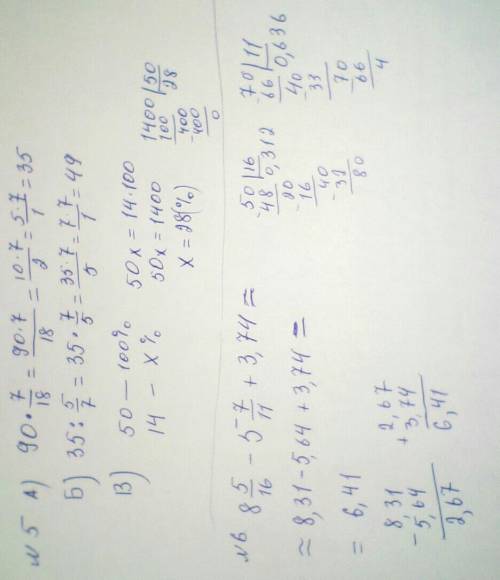 №5 А) 90 · 7/18 = 90·7/18 = 10·7/2 = 5·7/1 = 35
Б) 35 : 5/7 = 35 · 7/5 = 35·7/5 = 7·7/1 = 49
В) 50 — 100% 50x = 14·100
14 — x% 50x = 1400
x = 28(%)
1400 | 50
100 | 28
400
-400
0
№6 8 5/16 - 5 7/11 + 3,74 ≈
≈ 8,31 - 5,64 + 3,74 =
= 6,41
8,31
- 5,64
2,67
2,67
+ 3,74
6,41
-50 | 16
48 | 0,312
-20
16
-40
32
80
-70 | 11
66 | 0,636
-40
33
-70
66
4